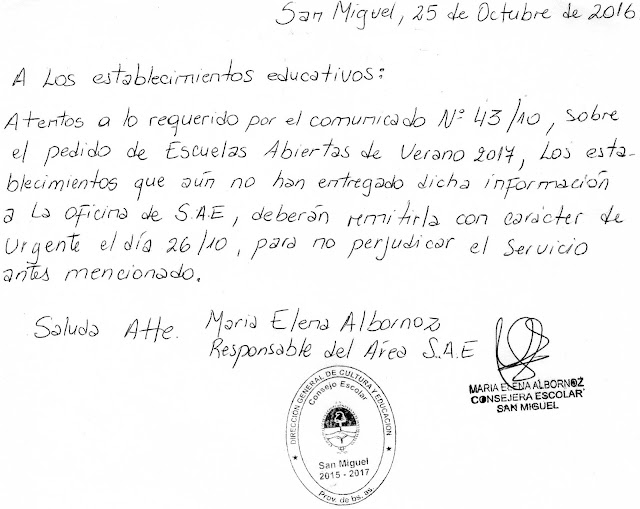 San Miguel, 25 de Octubre de 2016
A Los establecimientos educativos:
Atentos a lo requerido por el comunicado N° 43/10, sobre
el pedido de Escuelas Abiertas de Verano 2017, Los esta-
blecimientos que aún no han entregado dicha información
a La oficina de S.A.E, deberán remitirla con carácter de
Urgente el día 26/10, para no perjudicar el Servicio
antes mencionado.
Saluda Atte. Maria Elena Albornoz
Responsable del Área S.A.E
MARIA ELENA ALBORNOZ
CONSEJERA ESCOLAR
SAN MIGUEL
DIRECCIÓN GENERAL DE CULTURA Y EDUCACIÓN
Consejo Escolar
San Miguel
2015 - 2017
Prov. de bs. as